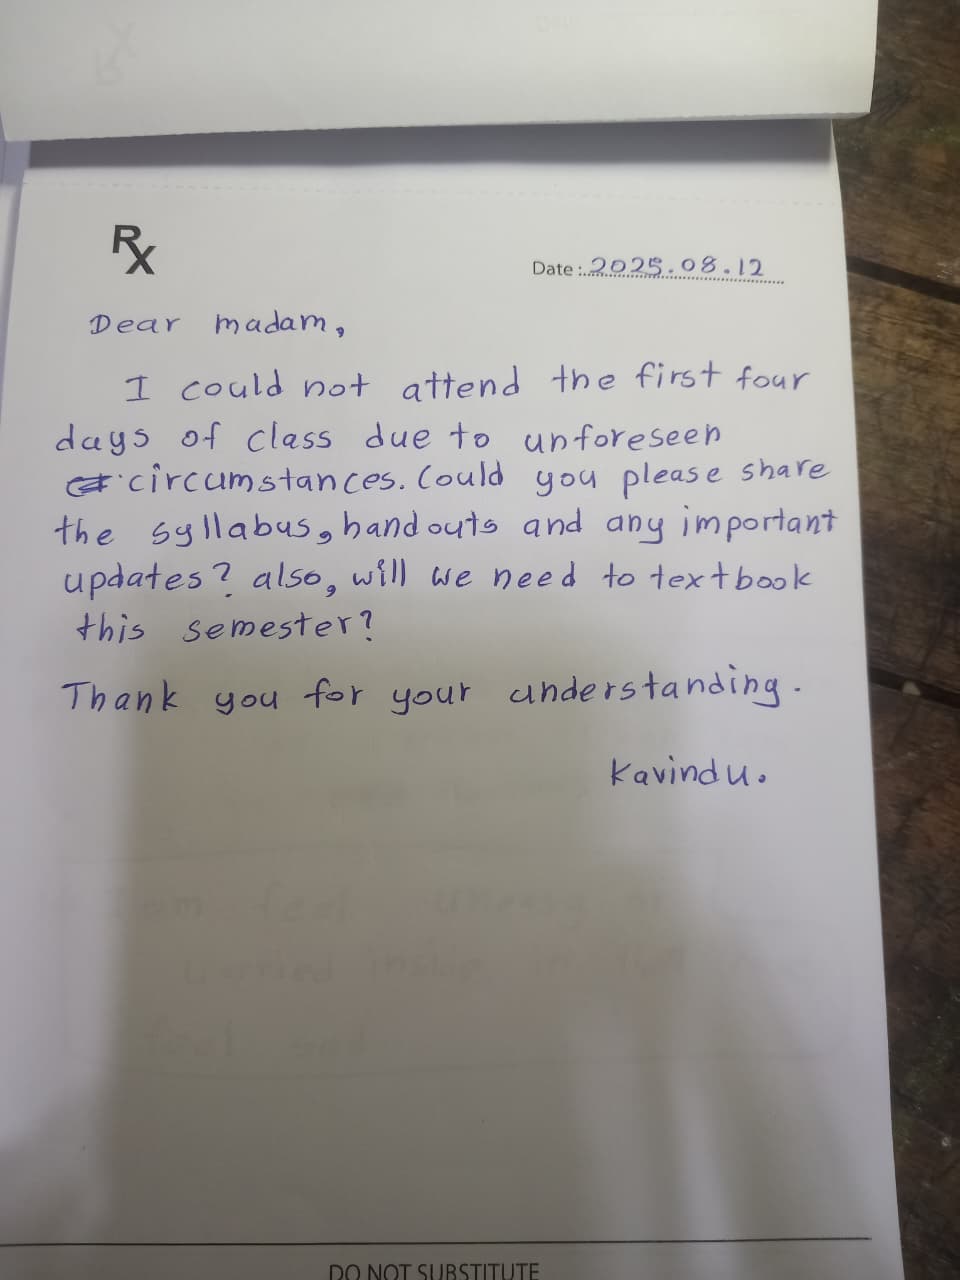 Rx
Date : 2025.08.12
Dear madam,
I could not attend the first four
days of class due to unforeseen
circumstances. Could you please share
the syllabus, handouts and any important
updates? also, will we need to textbook
this semester?
Thank you for your understanding.
Kavindu.
DO NOT SUBSTITUTE